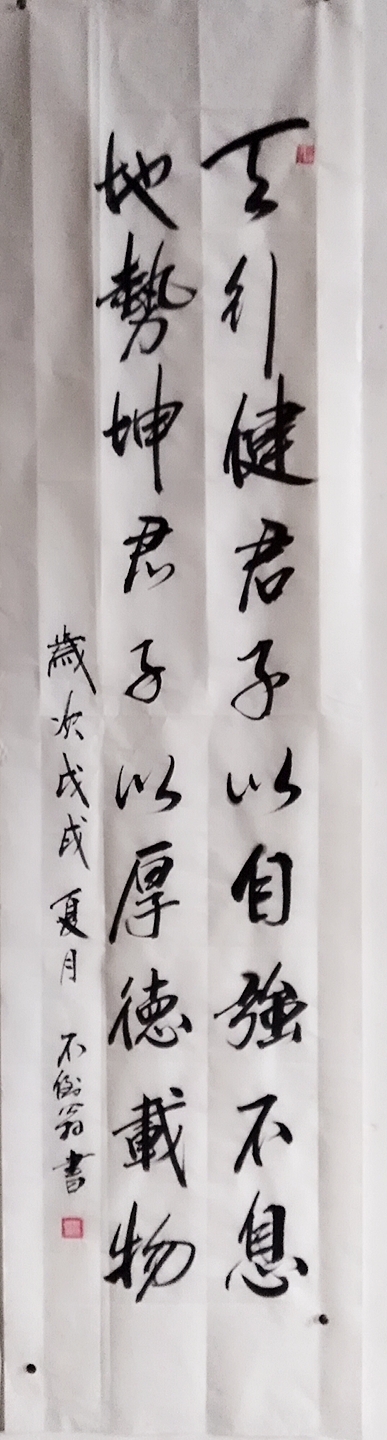 天行健君子以自強不息
地勢坤君子以厚德載物
歲次戊戌夏月 不倒翁書